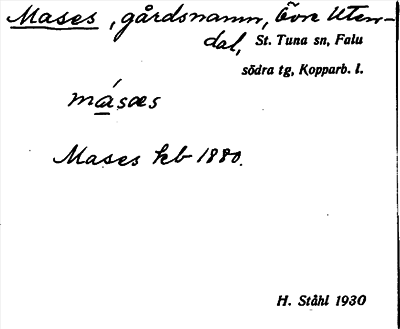 Mases, gårdsnamn, Övre Uten-
dal, St. Tuna sn, Falu
södra tg, Kopparb. l.
má̱sæs
Mases kb 1880.
H. Ståhl 1930